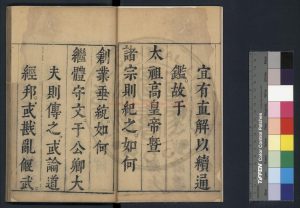 宜有直解以續通
鑑故于
太祖高皇帝暨
諸宗則紀之如何
創業垂統如何
繼體守文于公卿大
夫則傳之或論道
經邦或戡亂偃武
TIFFEN Color Control Patches